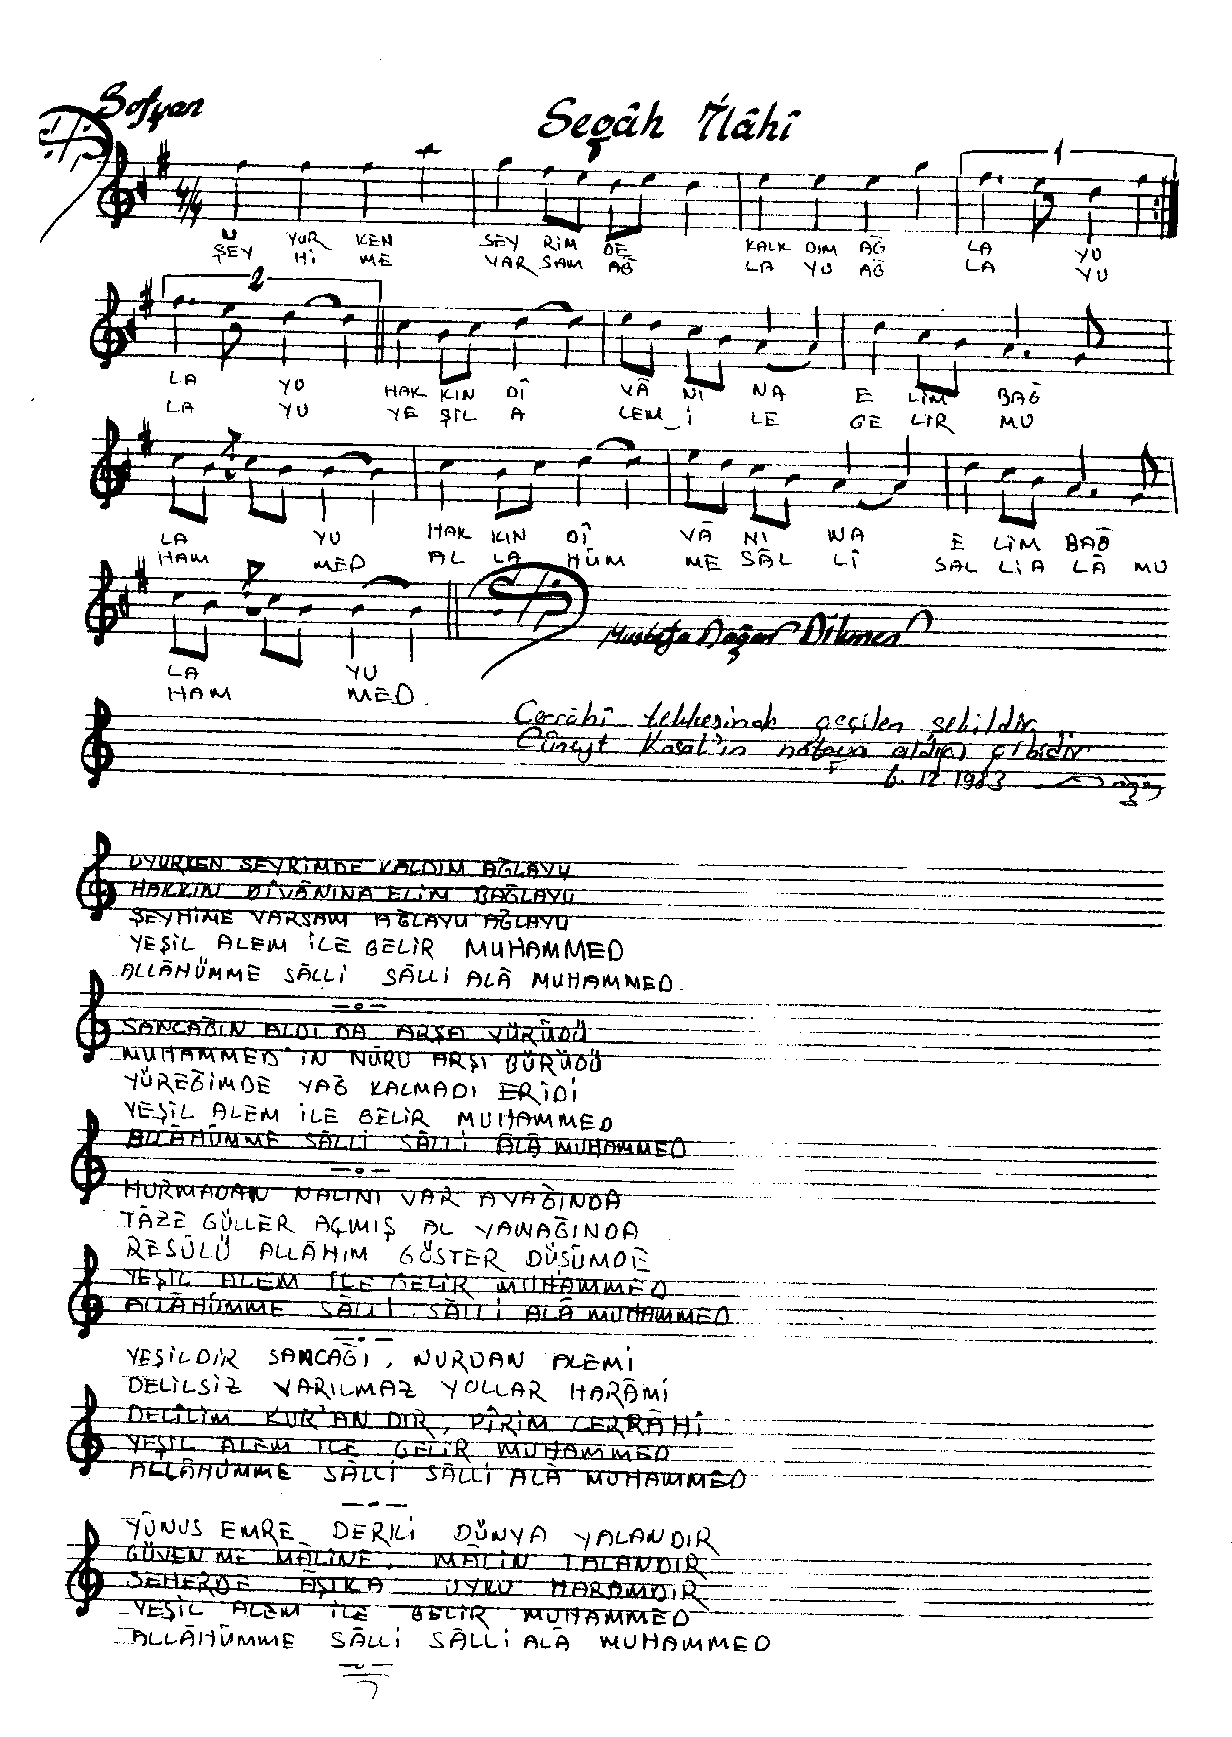 Sofyan
Segâh İlâhî
4/4
1
U YUR KEN SEY RİM DE KALK DIM AĞ LA YU
ŞEY Hİ ME VAR SAM AĞ LA YU AĞ LA YU
2
LA YU HAK KIN DÎ VÂ NI NA E LİM BAĞ
LA YU YE ŞİL A LEM_İ LE GE LİR MU
LA YU HAK KIN DÎ VÂ NI NA E LİM BAĞ
HAM MED AL LA HÜM ME SÂL Lİ SAL Lİ A LÂ MU
LA YU
HAM MED
Mustafa Doğan Dikmen
Cerrâhî tekkesinde geçilen şekildir.
Cüneyt Kosal'ın notaya aldığı gibidir
6.12.1983
UYURKEN SEYRİMDE KALDIM AĞLAYU
HAKKIN DÎVÂNINA ELİM BAĞLAYU
ŞEYHİME VARSAM AĞLAYU AĞLAYU
YEŞİL ALEM İLE GELİR MUHAMMED
ALLÂHÜMME SÂLLİ SÂLLİ ALÂ MUHAMMED
SANCAĞIN ALDI DA ARŞA YÜRÜDÜ
MUHAMMED'İN NÛRU ARŞI BÜRÜDÜ
YÜREĞİMDE YAĞ KALMADI ERİDİ
YEŞİL ALEM İLE GELİR MUHAMMED
ALLÂHÜMME SÂLLİ SÂLLİ ALÂ MUHAMMED
HURMADAN NALINI VAR AYAĞINDA
TÂZE GÜLLER AÇMIŞ AL YANAĞINDA
RESÛLÜ ALLÂHIM GÖSTER DÜŞÜMDE
YEŞİL ALEM İLE GELİR MUHAMMED
ALLÂHÜMME SÂLLİ SÂLLİ ALÂ MUHAMMED
YEŞİLDİR SANCAĞI, NURDAN ALEMİ
DELİLSİZ VARILMAZ YOLLAR HARÂMİ
DELÎLİM KUR'AN DIR, PÎRİM CERRÂHÎ
YEŞİL ALEM İLE GELİR MUHAMMED
ALLÂHÜMME SÂLLİ SÂLLİ ALÂ MUHAMMED
YÛNUS EMRE DER Kİ DÜNYA YALANDIR
GÜVENME MÂLINE, MÂLIN TALANDIR
SEHERDE ÂŞIKA UYKU HARAMDIR
YEŞİL ALEM İLE GELİR MUHAMMED
ALLÂHÜMME SÂLLİ SÂLLİ ALÂ MUHAMMED